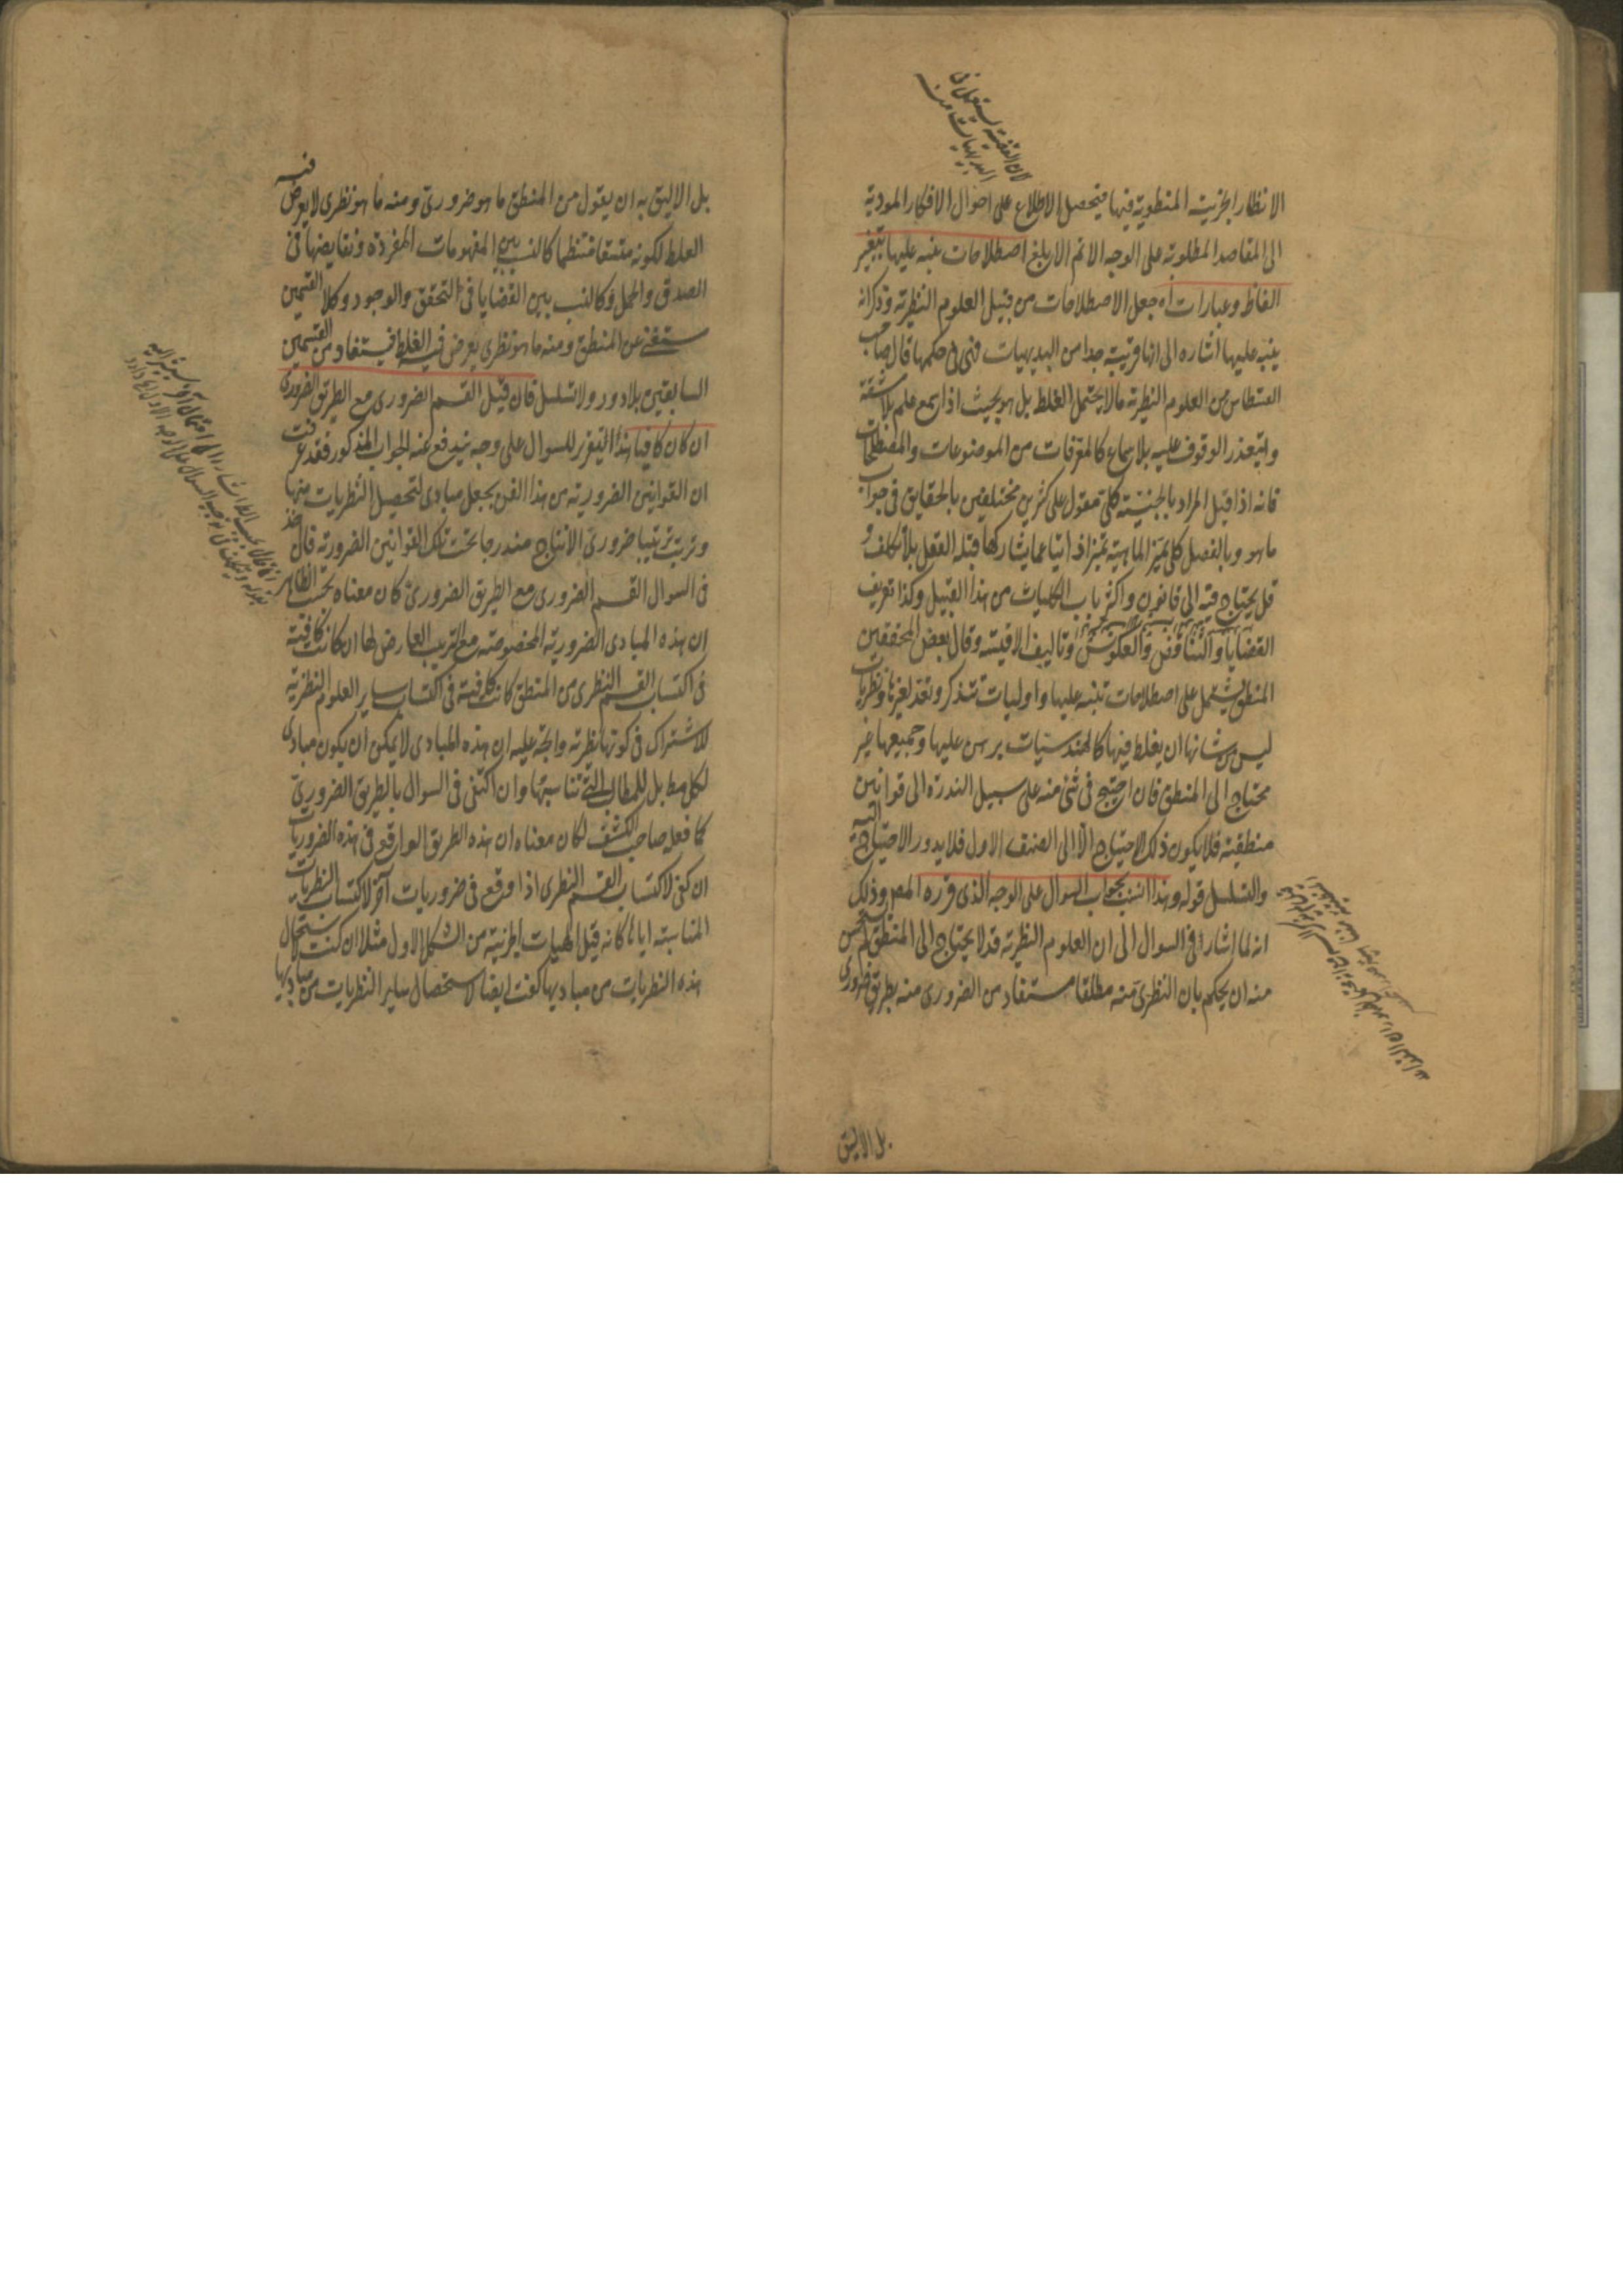 الانظار الجزئية المنطوية فيها فيحصل الاطلاع على احوال الافكار المودية
الى المقاصد المطلوبة على الوجه الاتم الابلغ اصطلاحات ينبه عليها بتغيير
الفاظ وعبارات اه جعل الاصطلاحات من قبيل العلوم النظرية وذكر انه
ينبه عليها اشارة الى انها قريبة جدا من البديهيات فهى فى حكمها قال صاحب
القسطاس من العلوم النظرية ما لا يحتمل الغلط بل هو بحيث اذا سمع علم بلا مشقة
وليتعذر الوقوف عليه بلا سماع كالمعرفات من الموضوعات والمصطلحات
فانه اذا قيل المراد بالجنس كلى مقول على كثيرين مختلفين بالحقايق فى جواب
ما هو وبالفصل كلى يميز الماهية تميزا ذاتيا عما يشاركها قبله العقل بلا تكلف و
قل يحتاج فيه الى قانون واكثر باب الكليات من هذا القبيل وكذا تعريف
القضايا والتناقض والعكوس وتاليف الاقيسة وقال بعض المحققين
المنطق يشتمل على اصطلاحات تنبه عليها واوليات تتذكر وتعد لغيرها ونظريات
ليس من شانها ان يغلط فيها كالهندسيات يبرهن عليها وجميعها غير
محتاج الى المنطق فان احتيج فى شئ منه على سبيل الندرة الى قوانين
منطقية فلا يكون ذلك الاحتياج الا الى الصنف الاول فلا يدور الاحتياج اليه
والتسلسل قوله وهذا انسب بجواب السوال على الوجه الذى قرره المص وذلك
انه لما اشار فى السوال الى ان العلوم النظرية قد لا يحتاج الى المنطق لم يستحسن
منه ان يحكم بان النظرى منه مطلقا مستفاد من الضرورى منه بطريق ضرورى
بل الاليق
بل الاليق به ان يقول من المنطق ما هو ضرورى ومنه ما هو نظرى لا يعرض فيه
الغلط لكونه متسقا منتظما كالنسب بين المفهومات المفردة ونقايضها فى
الصدق والحمل وكالنسب بين القضايا فى التحقق والوجود وكلا القسمين
مستغن عن المنطق ومنه ما هو نظرى يعرض فيه الغلط فيستفاد من القسمين
السابقين بلا دور ولا تسلسل فان قيل القسم الضرورى مع الطريق الضرورى
ان كان كافيا هذا التقرير للسوال على وجه يندفع عنه الجواب المذكور فقد عرفت
ان القوانين الضرورية من هذا الفن يجعل مبادى لتحصيل النظريات منها
وترتب ترتيبا ضرورى الانتاج مندرجا تحت تلك القوانين الضرورية فان اخذ
فى السوال القسم الضرورى مع الطريق الضرورى كان معناه بحسب الظاهر
ان هذه المبادى الضرورية المخصوصة مع الترتيب العارض لها ان كانت كافية
فى اكتساب القسم النظرى من المنطق كانت كافية فى اكتساب ساير العلوم النظرية
للاشتراك فى كونها نظرية واتجه عليه ان هذه المبادى لا يمكن ان يكون مبادى
لكل مط بل للمطالب التى تناسبها وان اكتفى فى السوال بالطريق الضرورى
كما فعله صاحب الكشف لكان معناه ان هذه الطريق الواقع فى هذه الضروريات
ان كفى لاكتساب القسم النظرى اذا وقع فى ضروريات آخر لاكتساب النظريات
المناسبة اياها كانه قيل الهيات الجزئية من الشكل الاول مثلا ان كفت لاستحصال
هذه النظريات من مباديها كفت ايضا لاستحصال ساير النظريات من مباديها